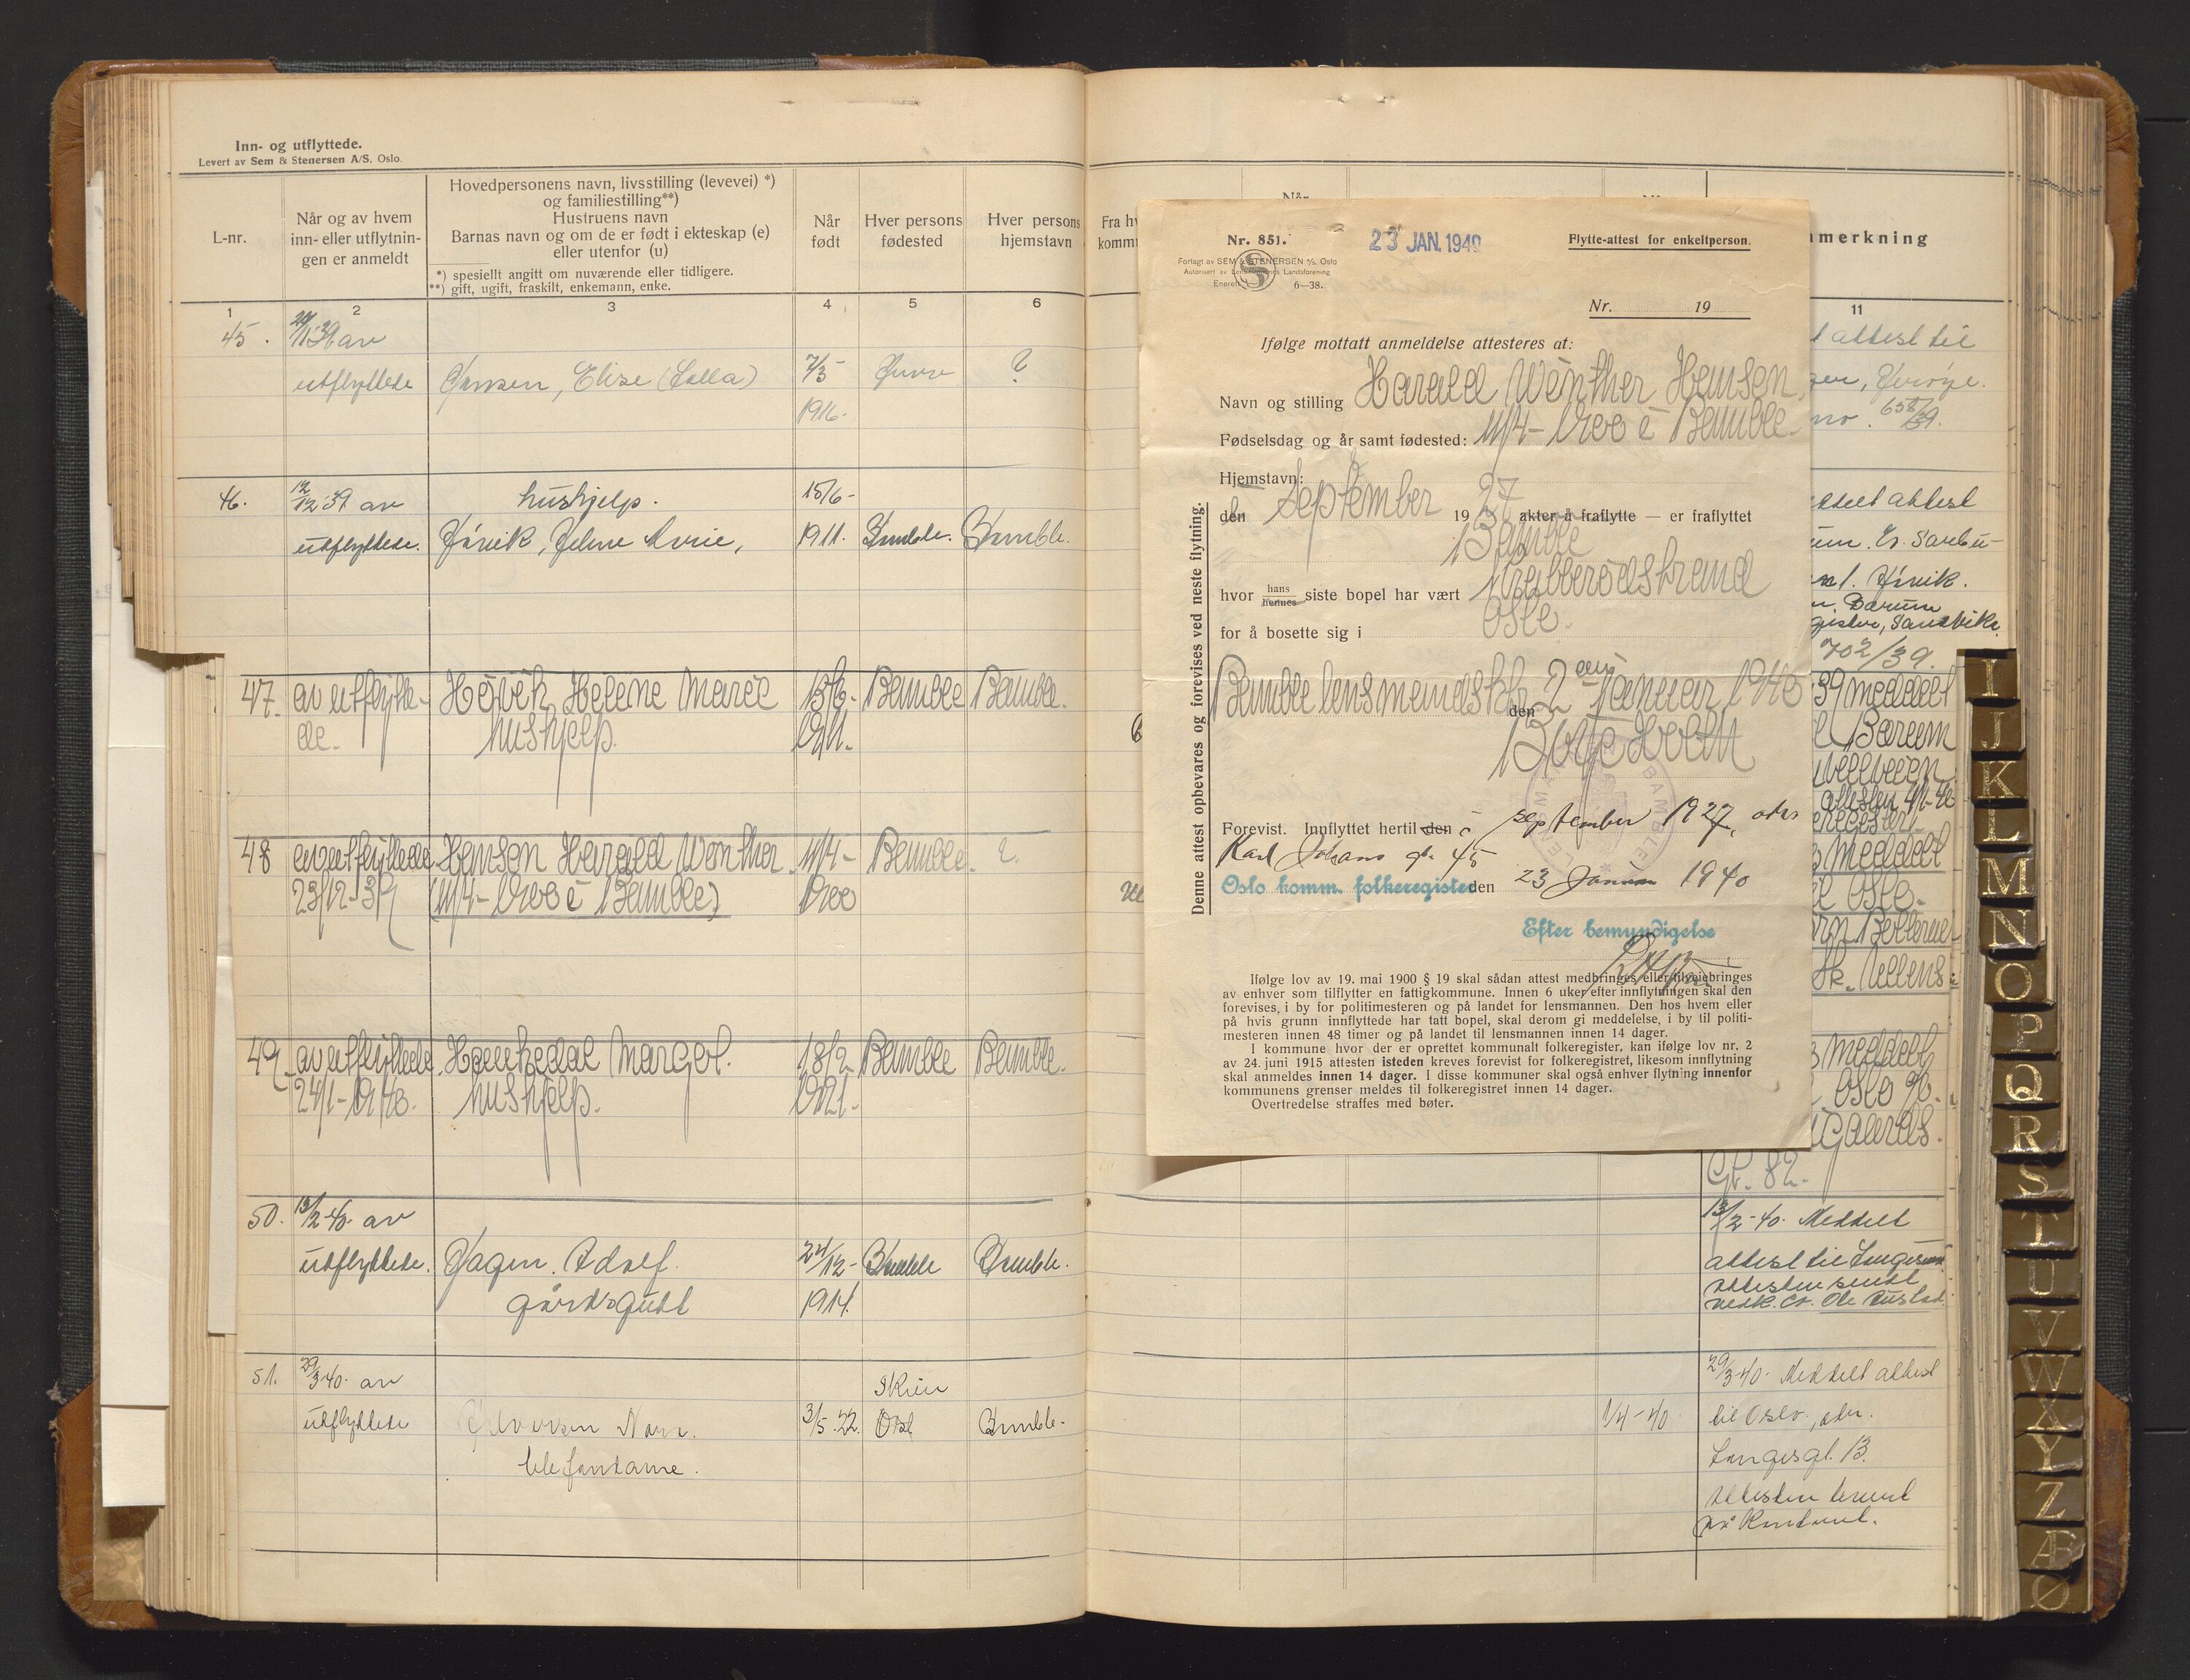 Inn- og utflyttede.
Levert av Sem & Stenersen A/S, Oslo.
L-nr.
Når og av hvem
inn- eller utflytnin-
gen er anmeldt
Hovedpersonens navn, livsstilling (levevei) *)
og familiestilling**)
Hustruens navn
Barnas navn og om de er født i ekteskap (e)
eller utenfor (u)
*) spesiellt angitt om nuværende eller tidligere.
**) gift, ugift, fraskilt, enkemann, enke.
Når
født
Hver persons
fødested
Hver persons
hjemstavn
1 2 3 4 5 6
45. 39 av
utflyttede Hansen, Elise 7/3 ?
1916.
46. 12/12 39 av hushjelp. 15/6-
utflyttede. 1911. Bamble. Bamble.
47. av utflytte- Høvik Helene Marie 15/6- Bamble Bamble.
de. hushjelp. 1911.
48 av utflyttede Hansen Harald Winther. 11/4- Bamble. ?.
23/12-39 (11/4-1900 i Bamble) 1900
49. av utflyttede Haukedal Margot. 18/2 Bamble Bamble.
24/1-1940. hushjelp. 1921.
50. 13/2-40. av
utflyttede. Hagen. Adolf. 24/12- Bamble Bamble.
gårdsgutt 1914.
51. 29/3 40. av Skien
utflyttede Halvorsen 3/5.22. Bamble.
telefondame.
Fra hv
kommu
Nr. 851.
23 JAN. 1940
Flytte-attest for enkeltperson.
Forlagt av SEM & STENERSEN A/S, Oslo
Autorisert av Lensmennenes Landsforening
Enerett. 6—38.
Nr. 19
Ifølge mottatt anmeldelse attesteres at:
Navn og stilling Harald Winther Hansen.
Fødselsdag og år samt fødested: 11/4-1900 i Bamble.
Hjemstavn:
den i September 1927 akter å fraflytte — er fraflyttet
Bamble
hvor hans/hennes siste bopel har vært Krabberødstrand
for å bosette sig i Oslo.
Bamble lensmannsktr. den 2 januar 1940
Forevist. Innflyttet hertil den i september 1927, adr.
Karl Johans gt. 45
Oslo komm. folkeregister den 23 Januar 1940
Efter bemyndigelse
Ifølge lov av 19. mai 1900 § 19 skal sådan attest medbringes eller tilveiebringes
av enhver som tilflytter en fattigkommune. Innen 6 uker efter innflytningen skal den
forevises, i by for politimesteren og på landet for lensmannen. Den hos hvem eller
på hvis grunn innflyttede har tatt bopel, skal derom gi meddelelse, i by til politi-
mesteren innen 48 timer og på landet til lensmannen innen 14 dager.
I kommune hvor der er oprettet kommunalt folkeregister, kan ifølge lov nr. 2
av 24. juni 1915 attesten isteden kreves forevist for folkeregistret, likesom innflytning
skal anmeldes innen 14 dager. I disse kommuner skal også enhver flytning innenfor
kommunens grenser meldes til folkeregistret innen 14 dager.
Overtredelse straffes med bøter.
Denne attest opbevares og forevises ved neste flytning.
merkning
11
attest til
658/39.
attest
Bærum
702/39.
39 meddelt
Bærum
meddelt
Oslo.
meddelt
Oslo
Gt. 82.
13/2-40. Meddelt
attest til Langesund
attesten sendt
29/3-40. Meddelt attest
1/4-40 til Oslo, adr.
Langesgt. 13.
Attesten hentet
på Kontoret.
I
J
K
L
M
N
O
P
Q
R
S
T
U
V
W
X
Y
Z
Æ
Ø